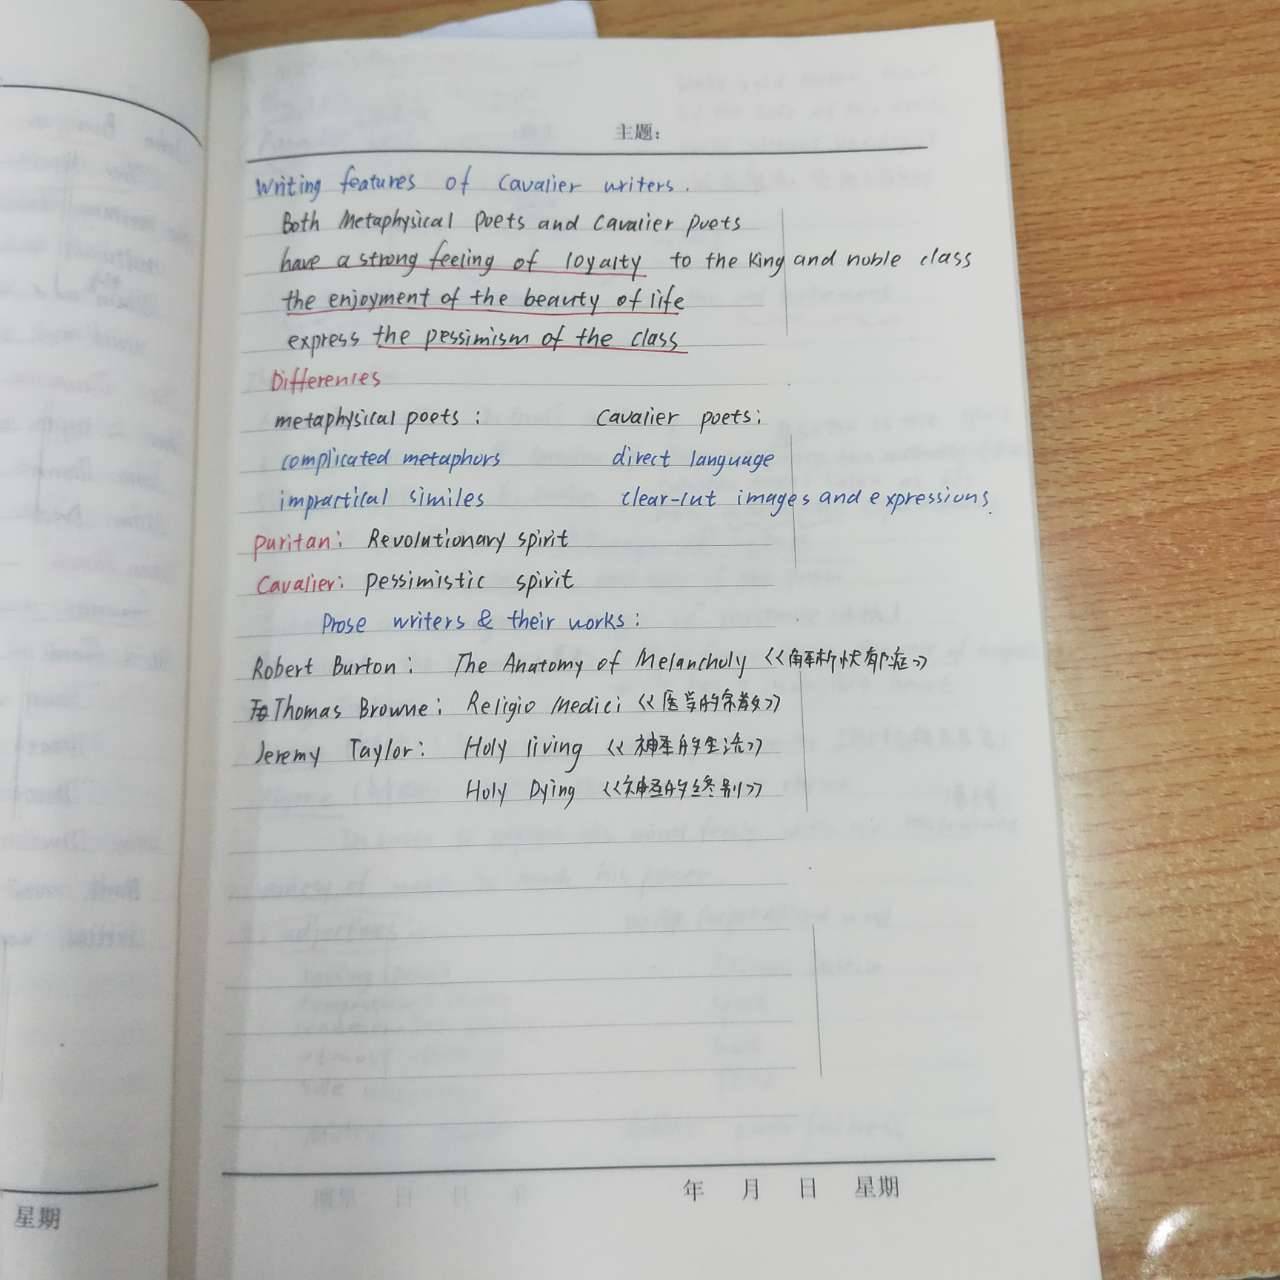 主题:
Writing features of Cavalier writers.
Both Metaphysical Poets and Cavalier Poets
have a strong feeling of loyalty to the King and noble class
the enjoyment of the beauty of life
express the pessimism of the class
Differences
metaphysical poets: Cavalier poets:
complicated metaphors direct language
impractical similes clear-cut images and expressions.
Puritan: Revolutionary spirit
Cavalier: pessimistic spirit
Prose writers & their works:
Robert Burton: The Anatomy of Melancholy 《解析忧郁症》
Thomas Browne: Religio Medici 《医学的宗教》
Jeremy Taylor: Holy living 《神圣的生活》
Holy Dying 《神圣的终别》
年 月 日 星期
星期